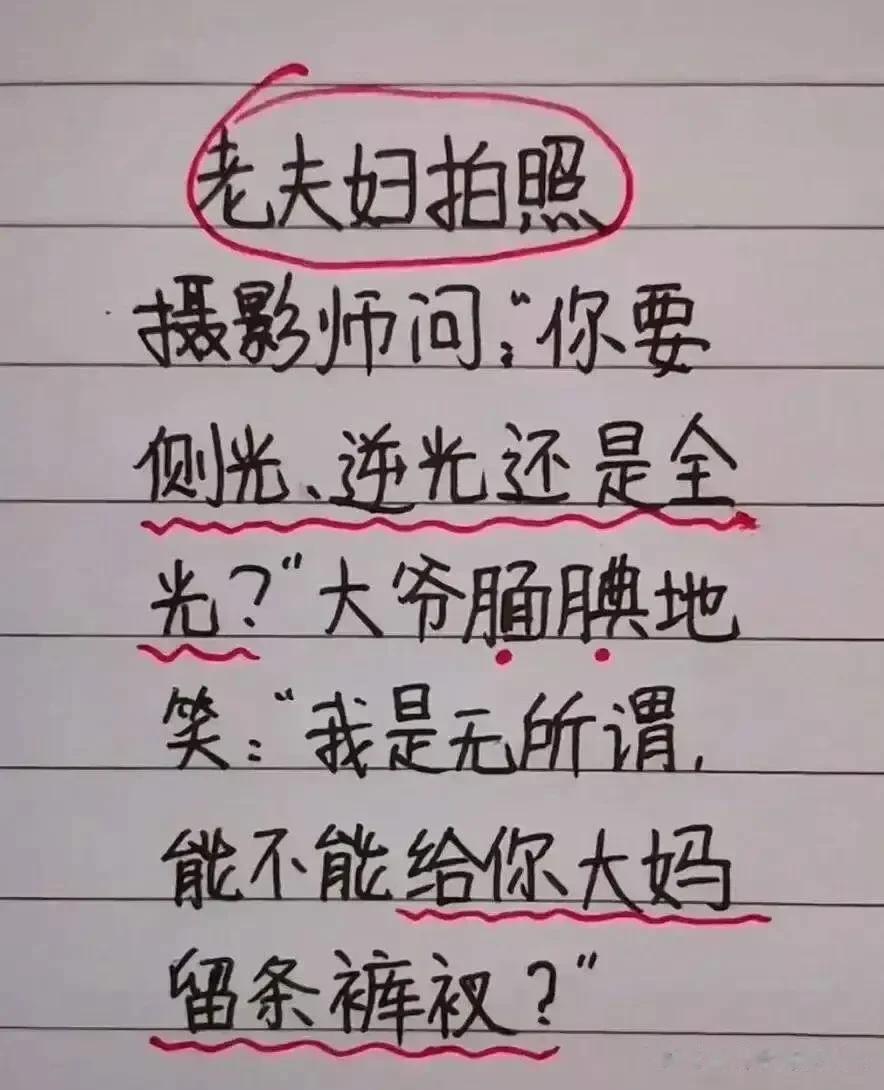 老夫妇拍照
摄影师问:“你要
侧光、逆光还是全
光?”大爷腼腆地
笑:“我是无所谓,
能不能给你大妈
留条裤衩?”